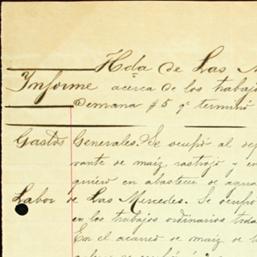 Hda de Las M
Informe acerca de los trabajo
Semana #5 qe terminó
Gastos Generales. Se ocupó al dep
vante de maiz rastrojo y en
quiero en abastecer de agua
Labor de Las Mercedes. Se ocupo
en los trabajos ordinarios toda
En el acarreo de maiz de l